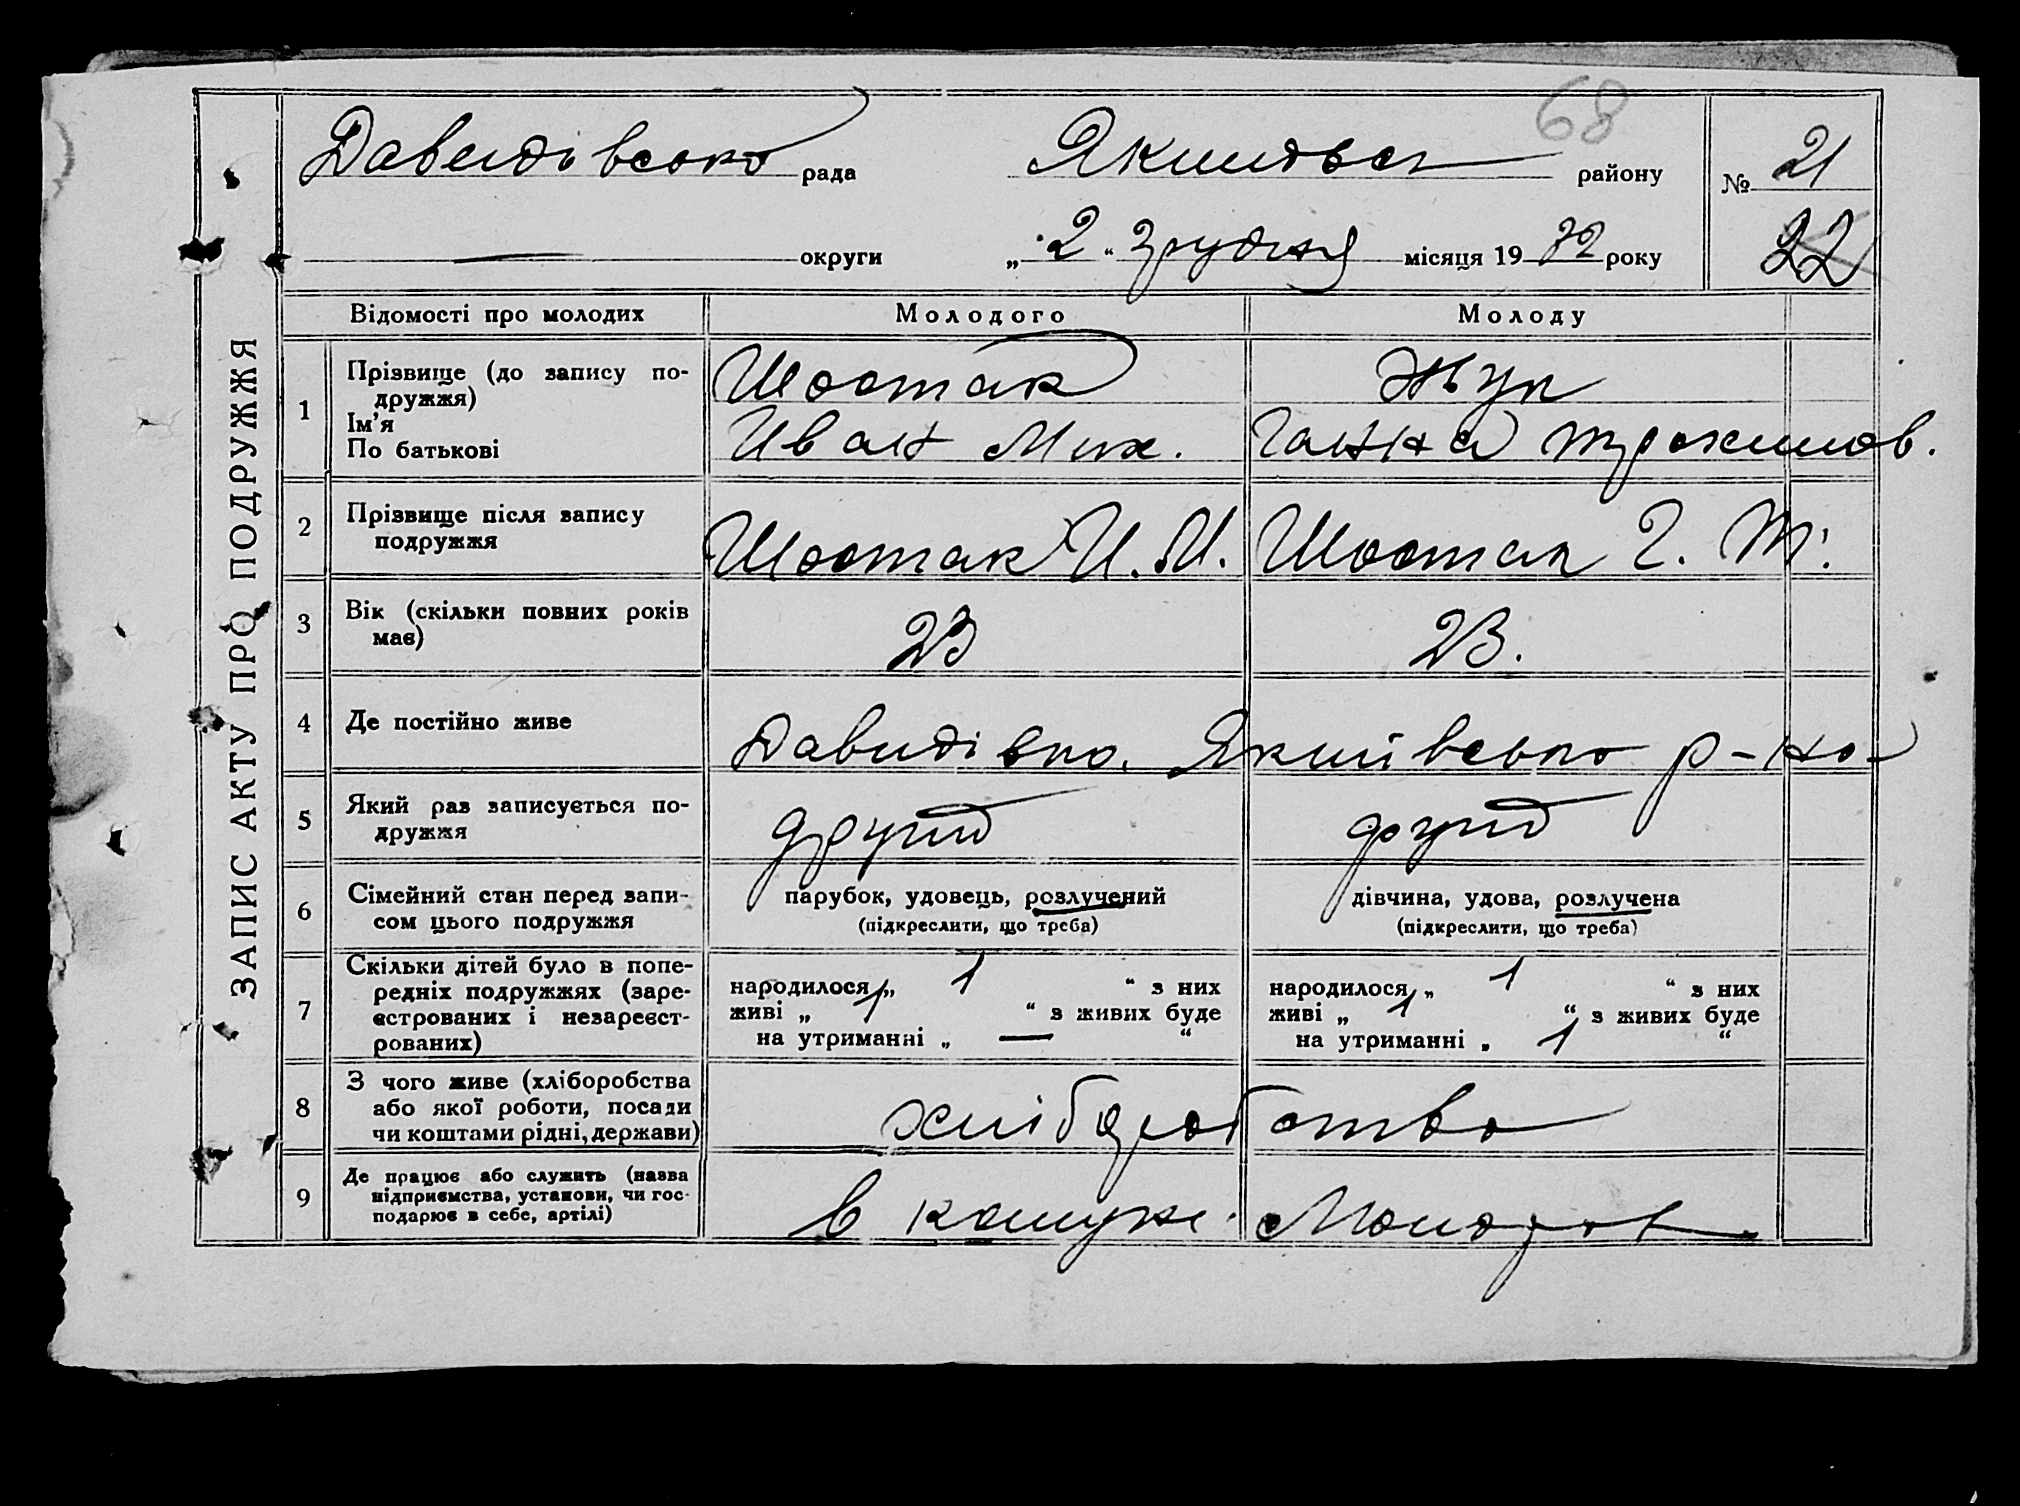 68
Давидівсько рада Якимівсь району № 21
— округи „2“ Грудня місяця 1932 року 22
ЗАПИС АКТУ ПРО ПОДРУЖЖЯ
Відомості про молодих Молодого Молоду
1 Прізвище (до запису по-
дружжя)
Ім'я
По батькові
Шостак Жук
Иван Мих. Ганна Трохимов.
2 Прізвище після запису
подружжя
Шостак И. М. Шостак Г. Т.
3 Вік (скільки повних років
має)
23 23.
4 Де постійно живе
Давидівка. Якимівсько р-на
5 Який раз записується по-
дружжя
другий другий
6 Сімейний стан перед запи-
сом цього подружжя
парубок, удовець, розлучений
(підкреслити, що треба)
дівчина, удова, розлучена
(підкреслити, що треба)
7 Скільки дітей було в попе-
редніх подружжях (заре-
єстрованих і незареєст-
рованих)
народилося „ 1 “ з них
живі „ 1 “ з живих буде
на утриманні „ — “
народилося „ 1 “ з них
живі „ 1 “ з живих буде
на утриманні „ 1 “
8 З чого живе (хліборобства
або якої роботи, посади
чи коштами рідні, держави)
хліборобство
9 Де працює або служить (назва
підприємства, установи, чи гос-
подарює в себе, артілі)
в